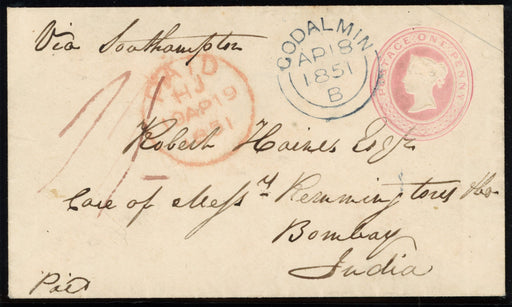 Via Southampton
GODALMIN
AP 18
1851
B
POSTAGE ONE PENNY
PAID
HJ
AP 19
1851
1/-
Robert Haines Esqr
Care of Messrs Remmingtons & Co
Bombay
India
Paid